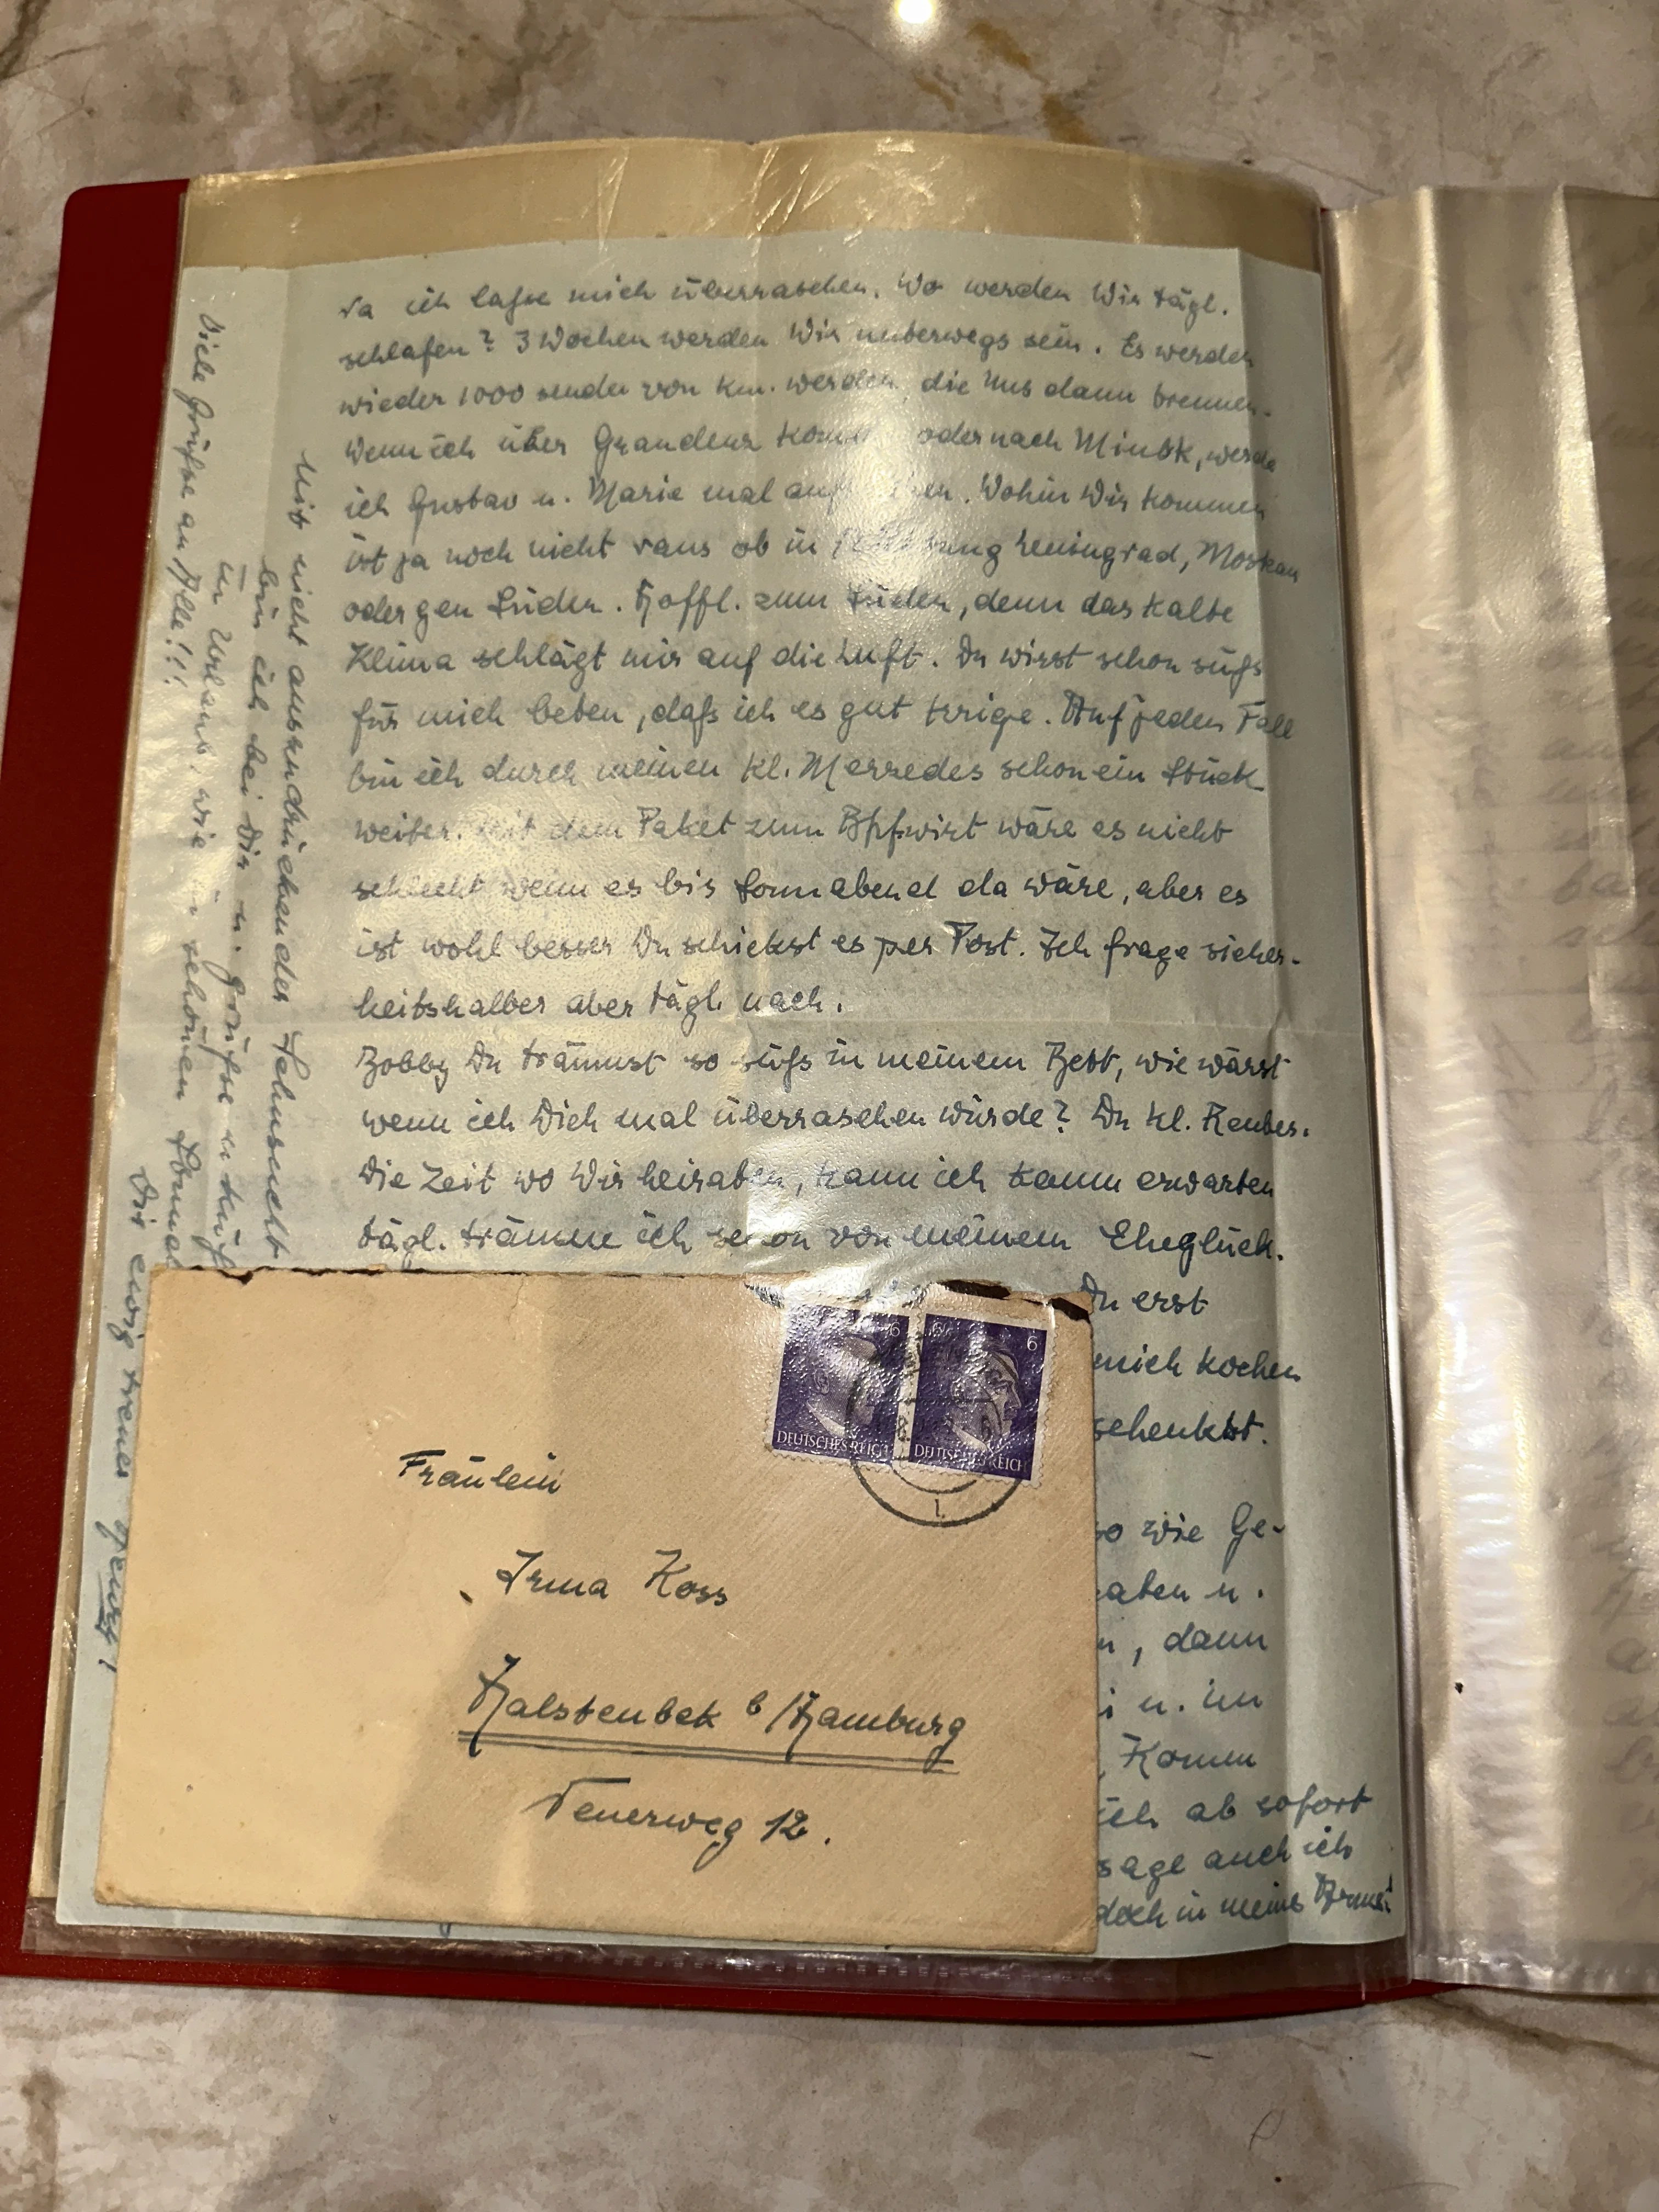 Na ich lasse mich überraschen. Wo werden Wir tägl.
schlafen? 3 Wochen werden Wir unterwegs sein. Es werden
wieder 1000 sender von Km. werden, die Uns dann trennen.
Wenn ich über Graudenz komme oder nach Minsk, werde
ich Gustav u. Marie mal aufsuchen. Wohin Wir kommen
ist ja noch nicht raus ob in Richtung Leningrad, Moskau
oder gen Süden. Hoffl. zum Süden, denn das kalte
Klima schlägt mir auf die Luft. Du wirst schon süß
für mich beten, daß ich es gut kriege. Auf jeden Fall
bin ich durch meinen kl. Merzedes schon ein Stück
weiter. Mit dem Paket zum wäre es nicht
schlecht wenn es bis Sonnabend da wäre, aber es
ist wohl besser Du schickst es per Post. Ich frage sicher-
heitshalber aber tägl. nach.
Bobby Du träumst so süß in meinem Bett, wie wärst
wenn ich Dich mal überraschen würde? Du kl. Räuber.
Die Zeit wo Wir heiraten, kann ich kaum erwarten
tägl. träume ich schon von meinem Eheglück.
Du erst
mich kochen
schenkst.
so wie Ge-
haben u.
, dann
u. im
, Komm
ich ab sofort
sage auch ich
doch in meine Arme!
Mit nicht auszudrückender Sehnsucht
bin ich bei Dir u. grüße u. küß
in Urlaub, wie im schönen
Dir ewig treuer
Viele Grüße an Alle!!!
6 6 6
DEUTSCHES REICH DEUTSCHES REICH
Fräulein
Irma Koss
Halstenbek b/Hamburg
Feuerweg 12.